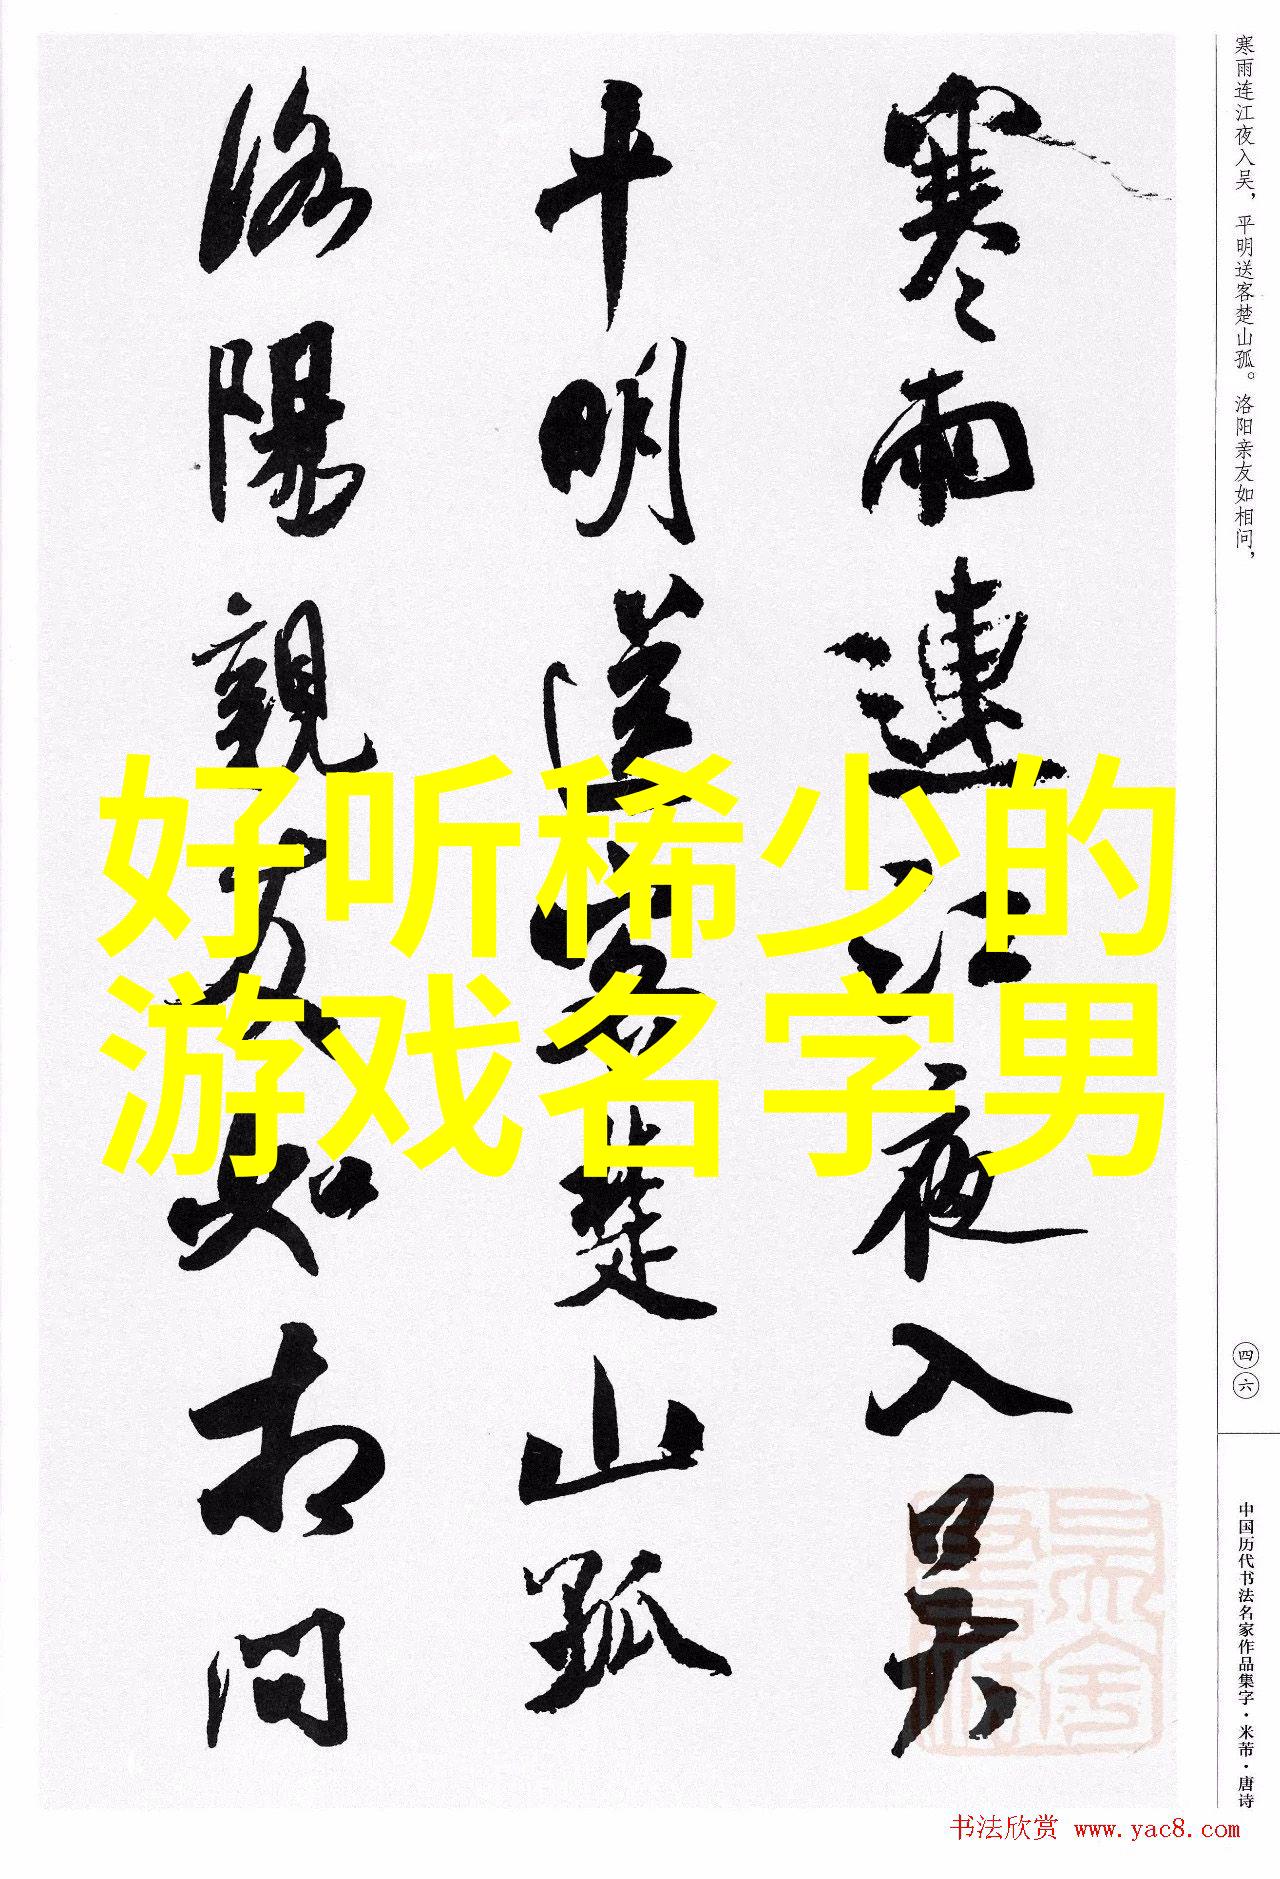 寒雨連江夜入吴
平明送客楚山孤
洛陽親友如相问
好听稀少的
游戏名字男
寒雨连江夜入吴，平明送客楚山孤。洛阳亲友如相问，
四六
中国历代书法名家作品集字·米芾·唐诗
书法欣赏 www.yac8.com